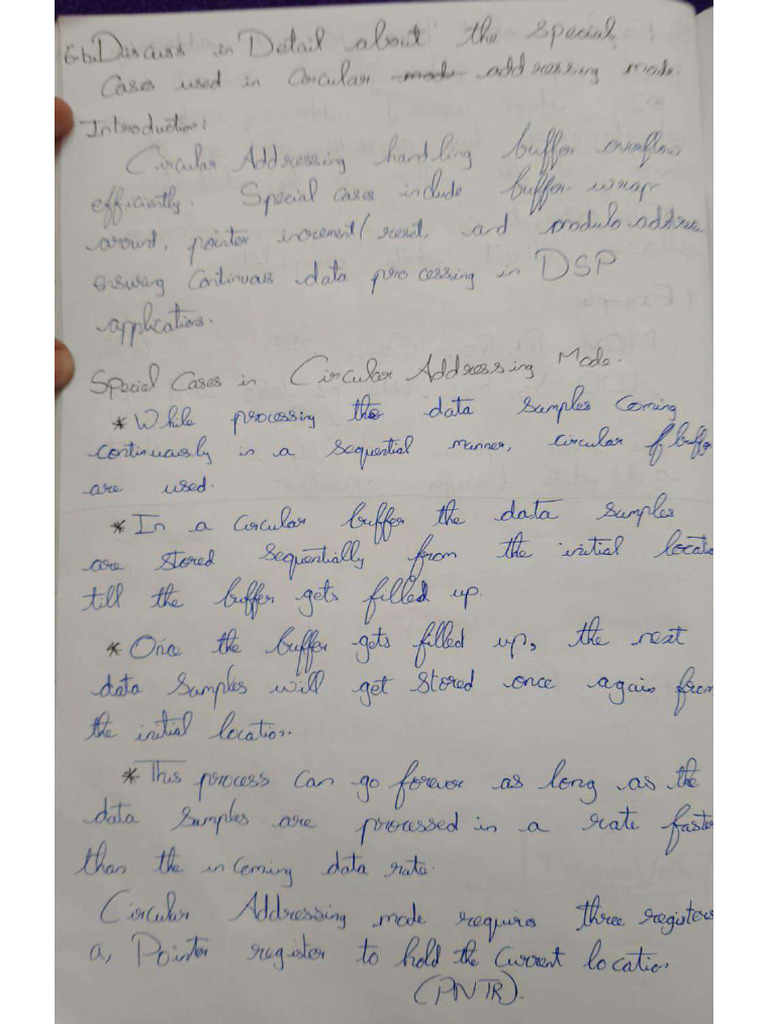 6.b. Discuss in Detail about the special
Cases used in Circular mode addressing mode.
Introduction:
Circular Addressing handling buffer overflow
efficiently. Special cases include buffer wrap
around, pointer increment/reset, and modulo addre
ensuring continuous data processing in DSP
applications.
Special Cases in Circular Addressing Mode.
* While processing the data samples coming
continuously in a sequential manner, circular buff
are used.
* In a circular buffer the data samples
are stored sequentially from the initial locatio
till the buffer gets filled up.
* Once the buffer gets filled up, the next
data samples will get stored once again from
the initial location.
* This process can go forever as long as the
data samples are processed in a rate faste
than the incoming data rate.
Circular Addressing mode requires three registers
a, Pointer register to hold the current location
(PNTR).